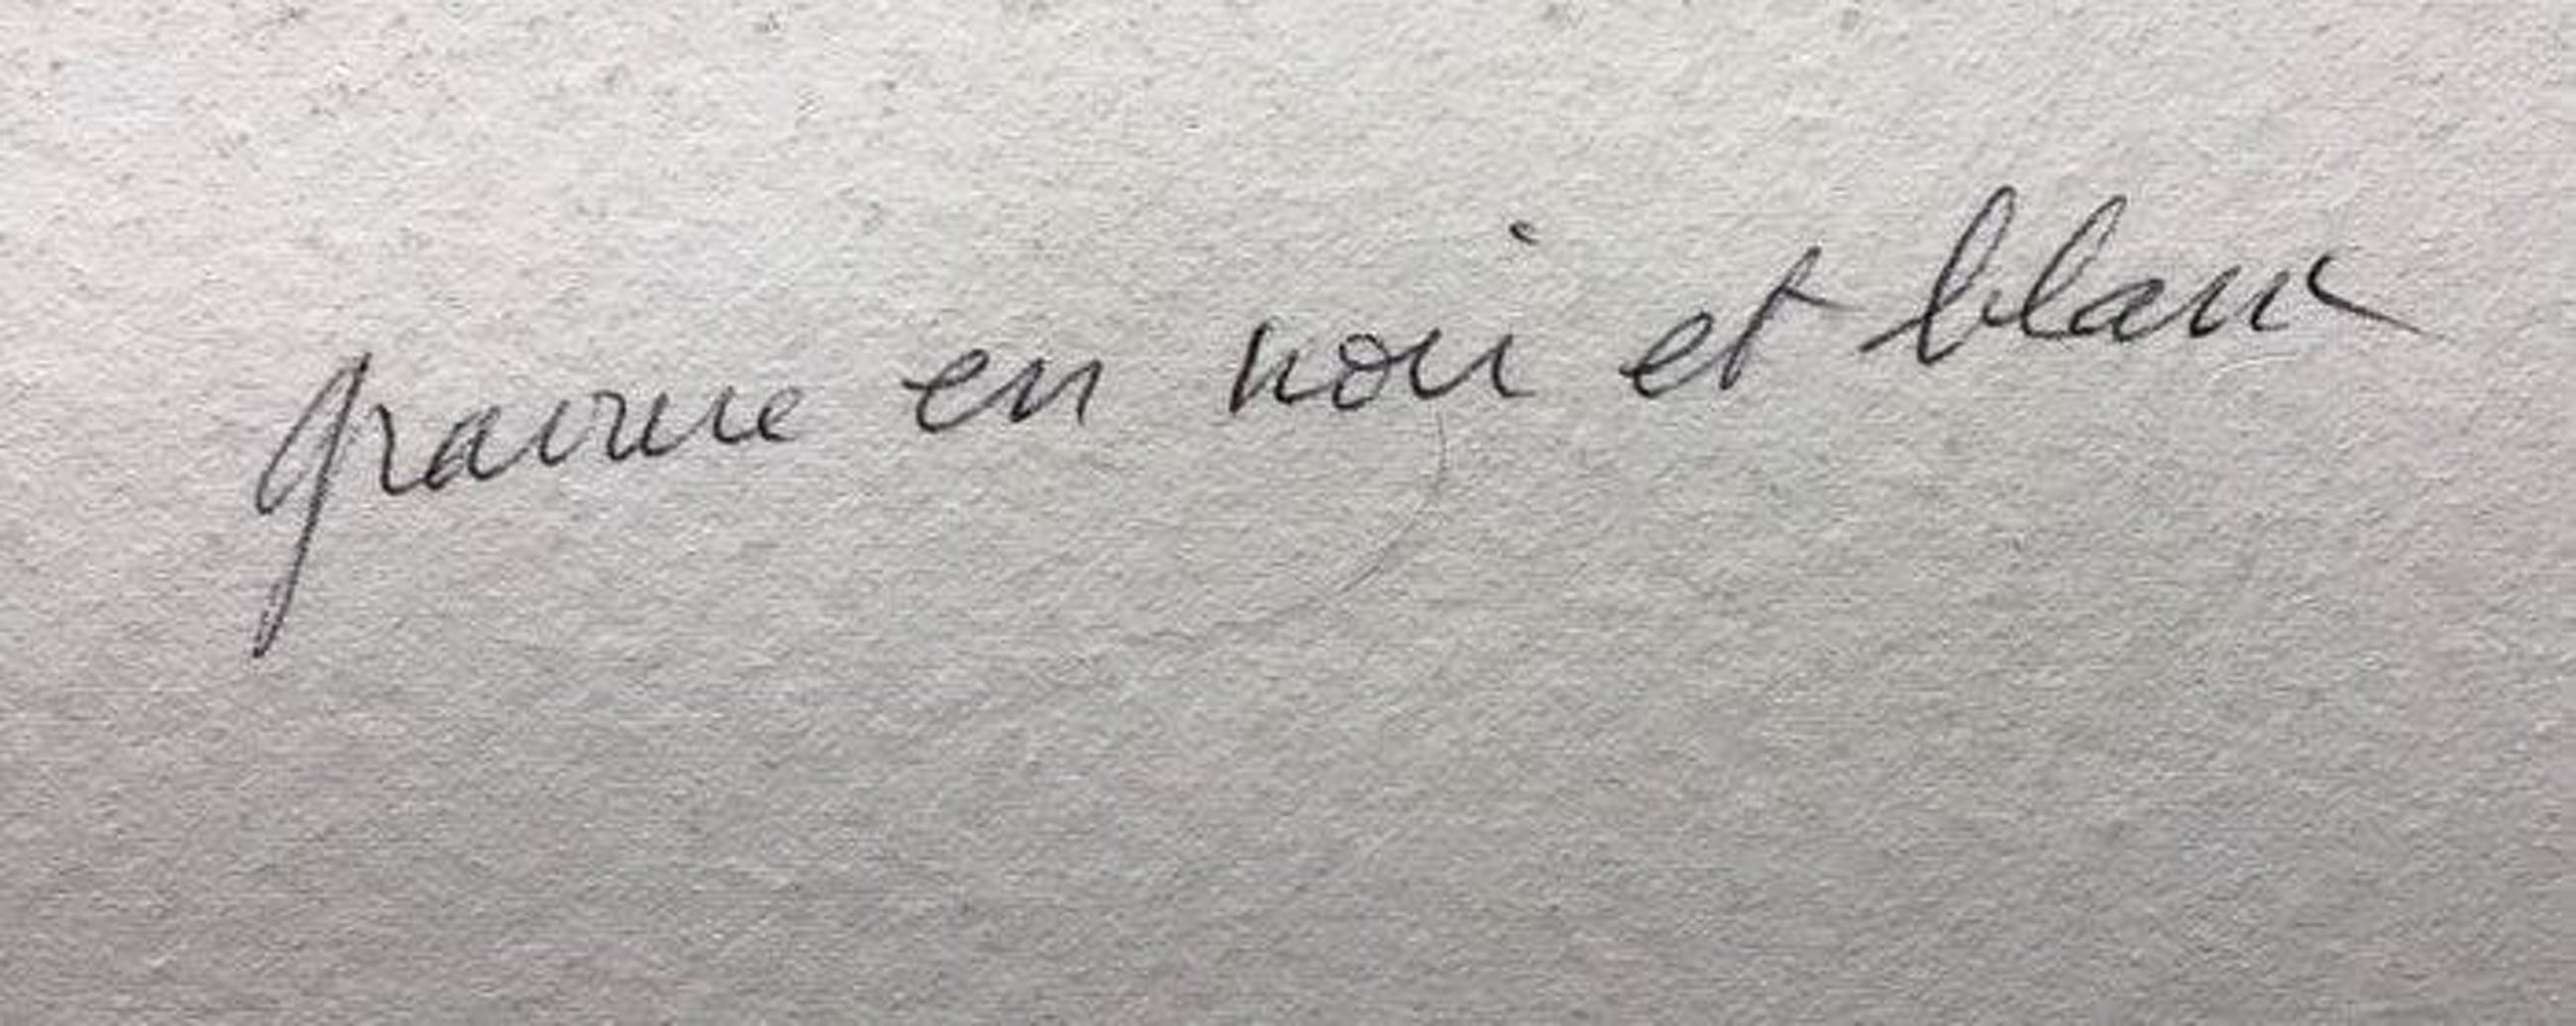 gravure en noir et blanc